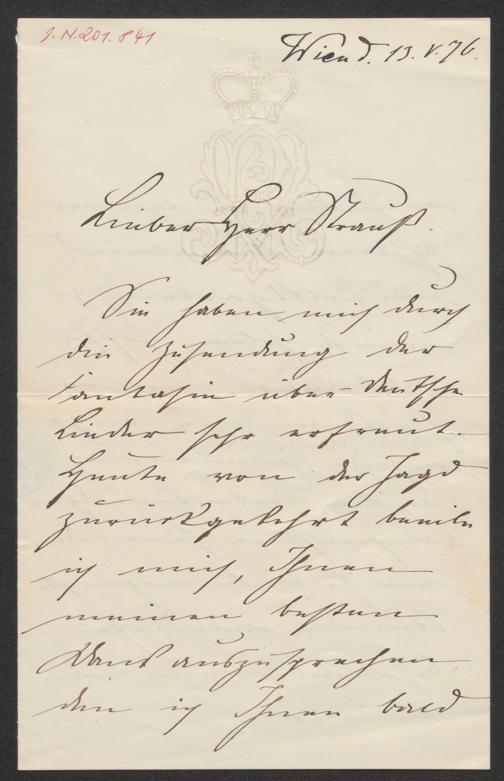 J.N.201.841
Wien d. 13. V. 76.
Lieber Herr Strauß.
Sie haben mich durch
die Zusendung der
Fantasie über deutsche
Lieder sehr erfreut.
Heute von der Jagd
zurückgekehrt beeile
ich mich, Ihnen
meinen besten
Dank auszusprechen
den ich Ihnen bald